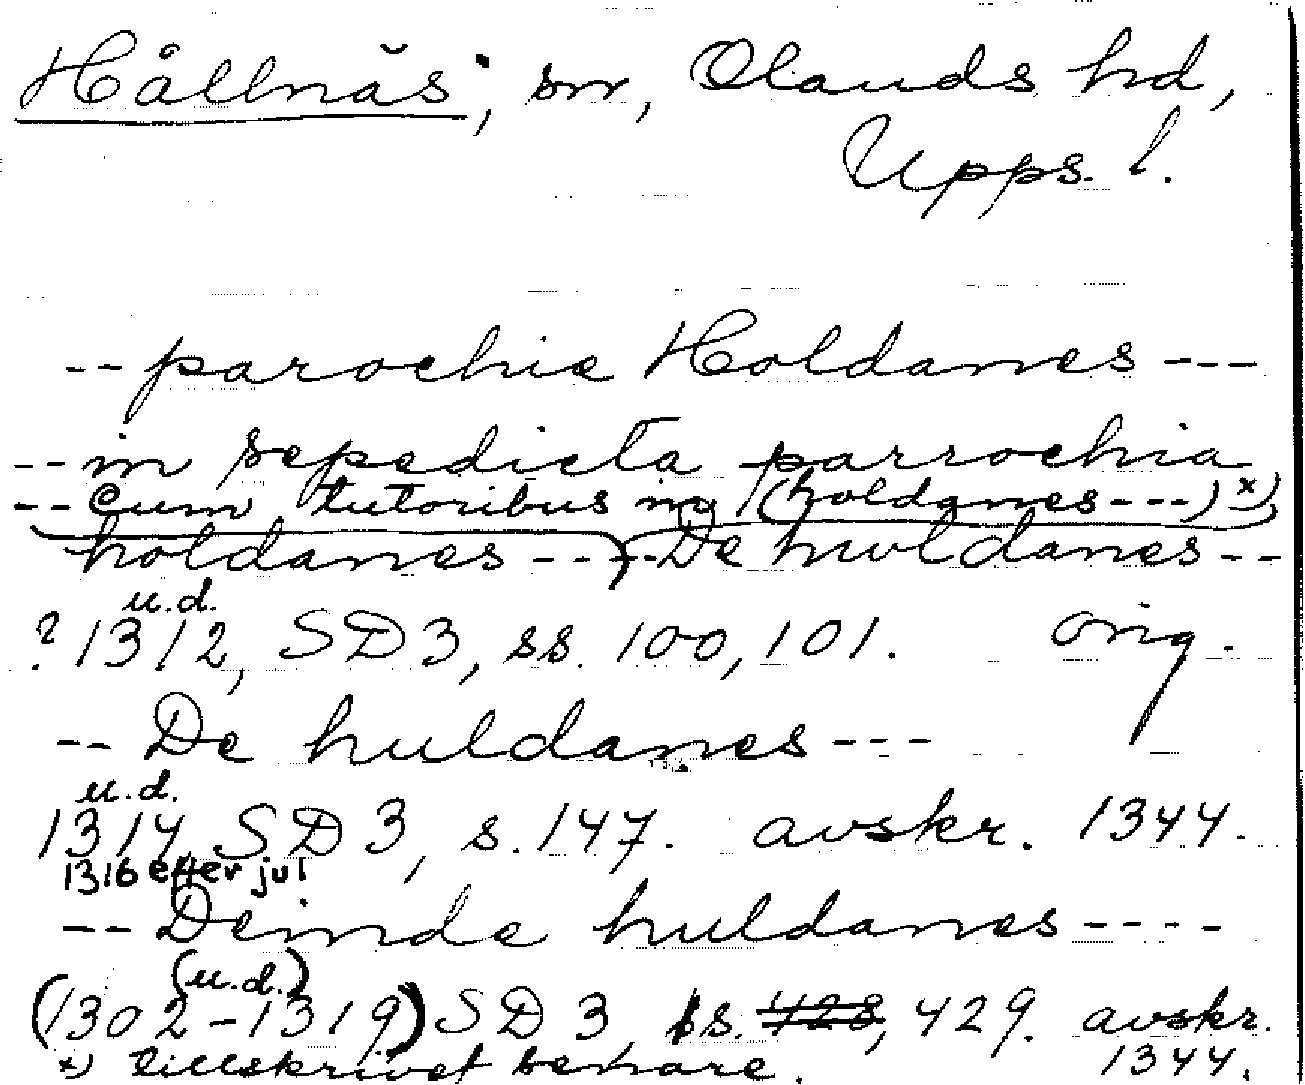 Hållnäs, sn, Olands hd,
Upps. l.
-- parochie Holdanes ---
-- in sepedicta parrochia
-- cum tutoribus in (holdanes ---) x)
holdanes --- De huldanes --
u.d.
? 1312, SD 3, ss. 100, 101. orig.
-- De huldanes ---
u.d.
1314 SD 3, s. 147. avskr. 1344.
1316 efter jul
-- Deinde huldanes ----
(u.d.)
(1302-1319) SD 3 ss. 428, 429. avskr.
x) tillskrivet senare. 1344.